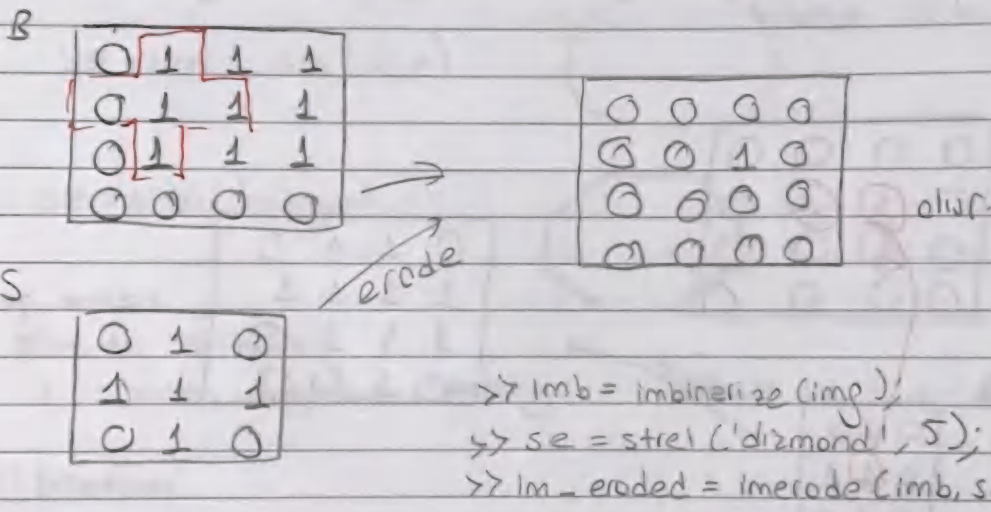 B
0 1 1 1
0 1 1 1
0 1 1 1
0 0 0 0
0 0 0 0
0 0 1 0
0 0 0 0
0 0 0 0
olur.
erode
S
0 1 0
1 1 1
0 1 0
>> imb = imbinerize (img);
>> se = strel ('diamond', 5);
>> im_eroded = imerode (imb, s